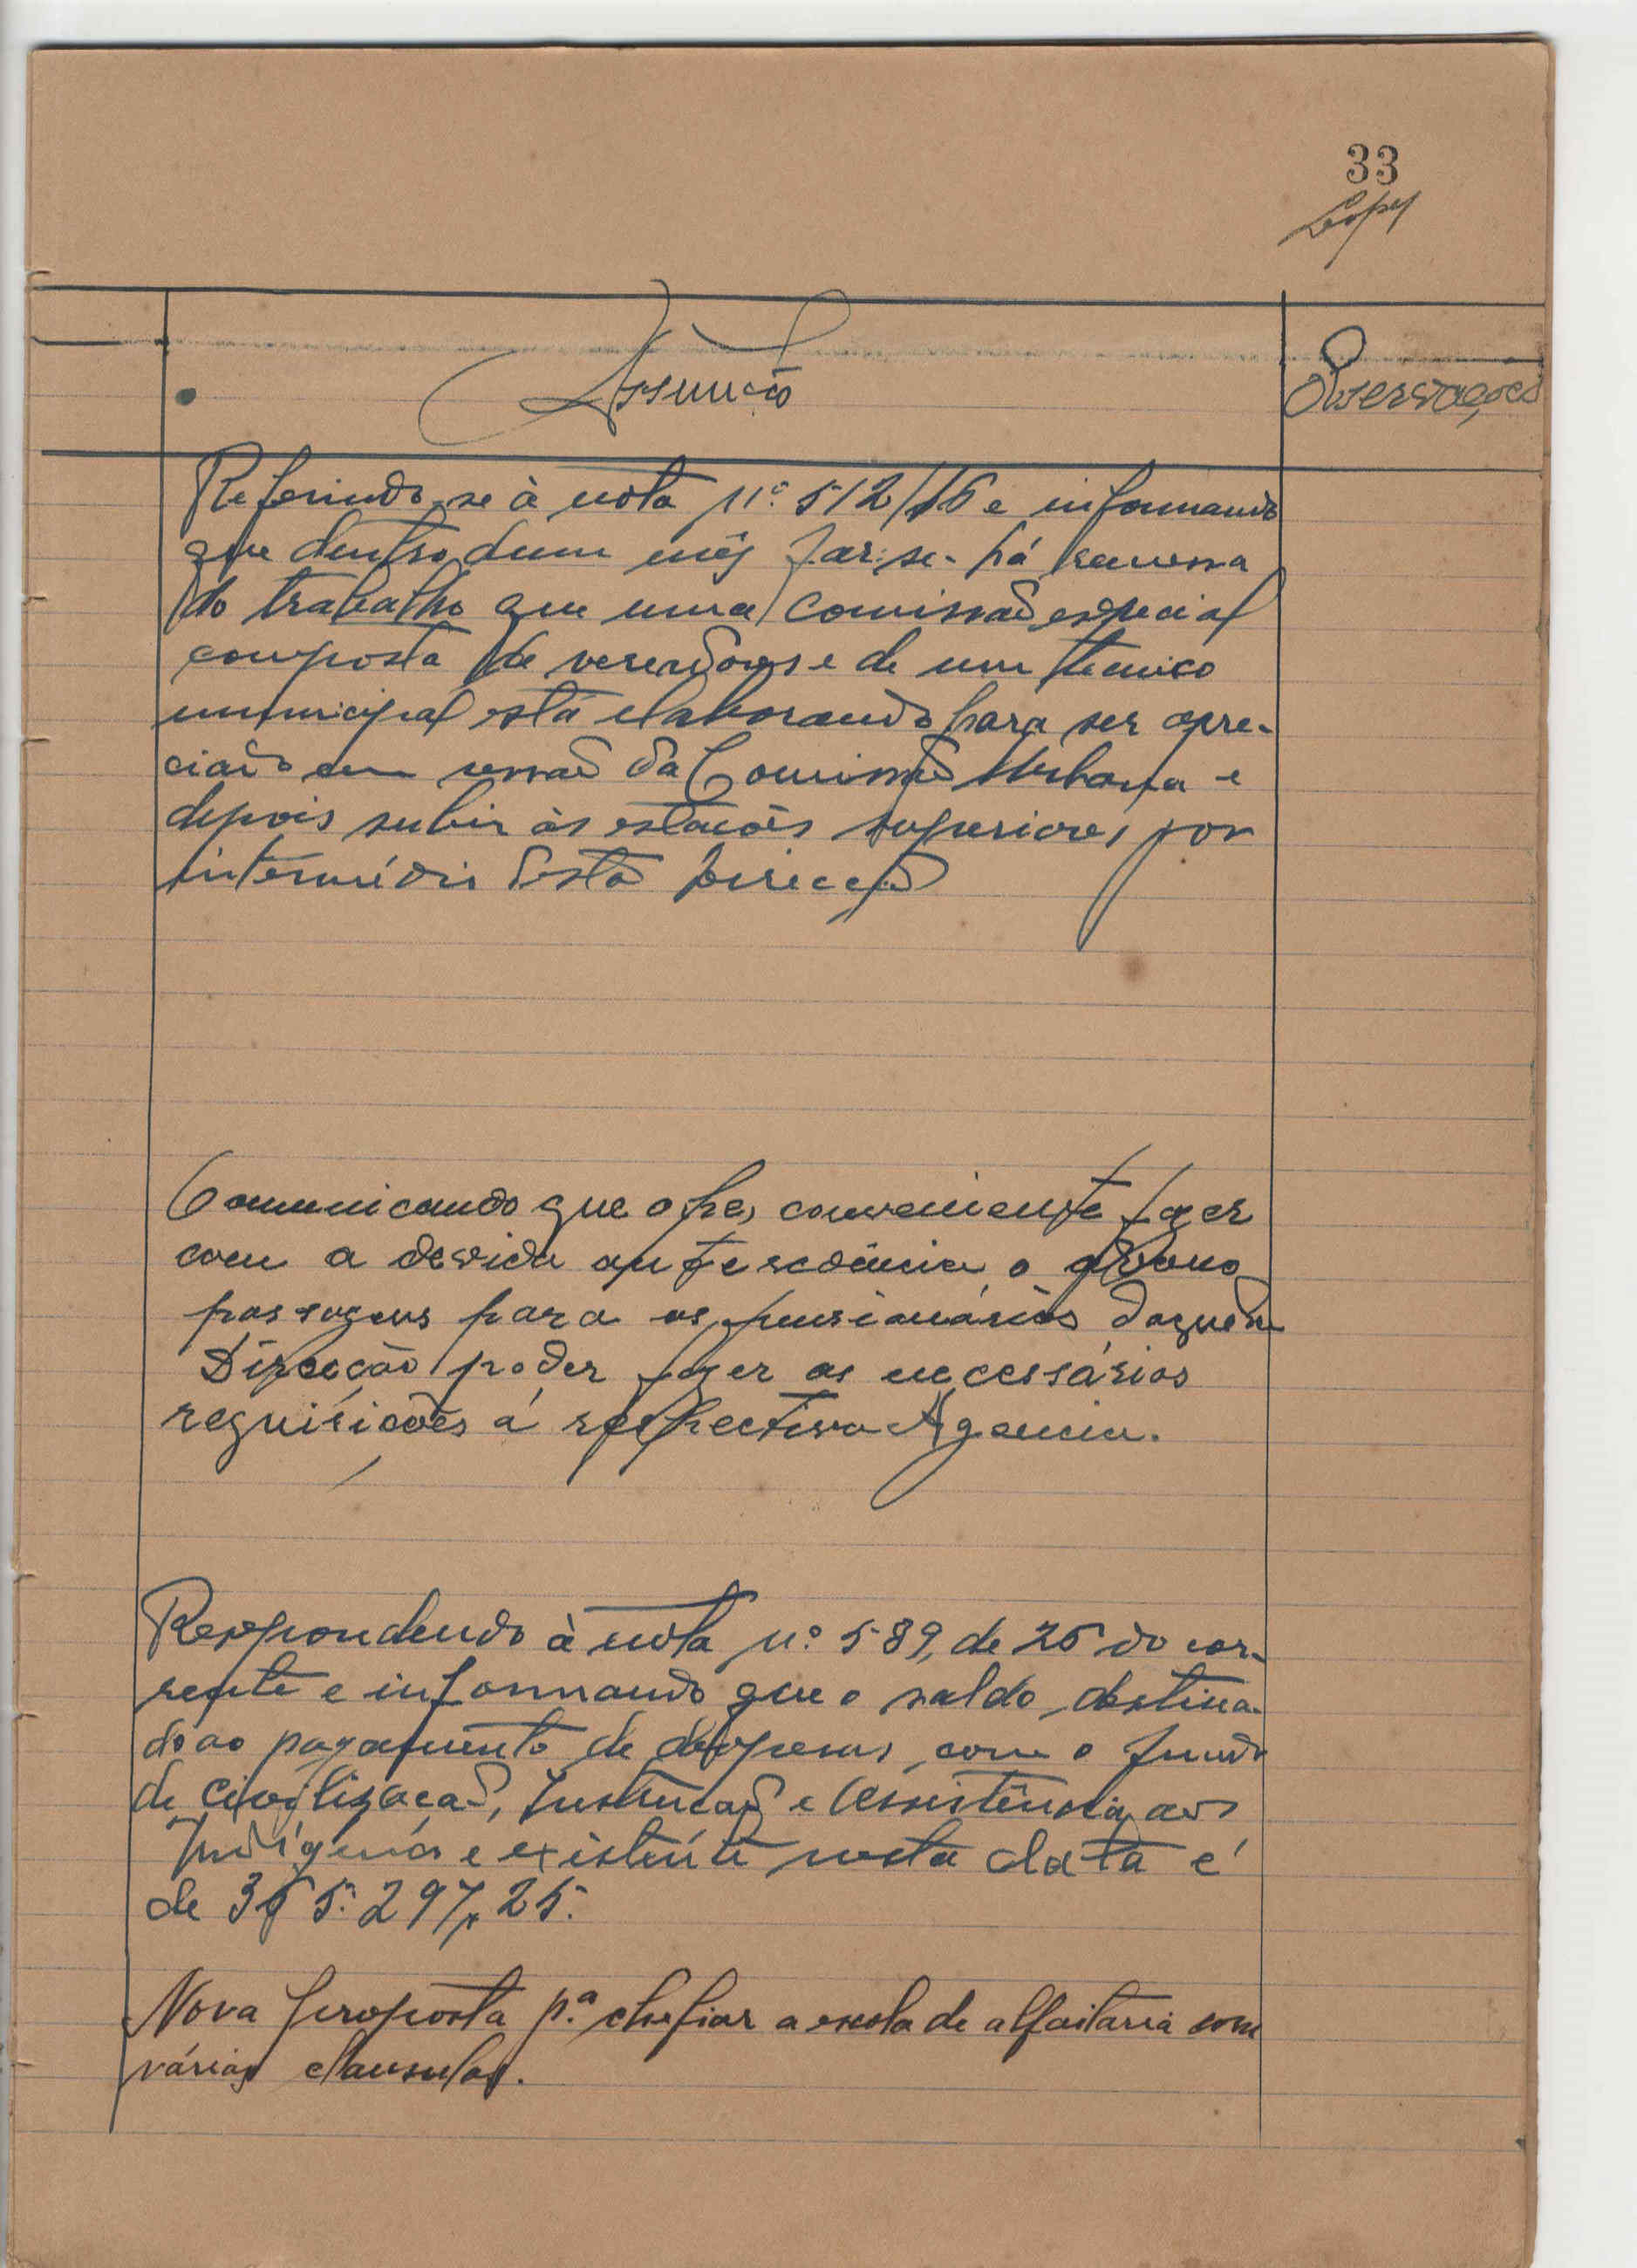 33
Assunto
Observações
Referindo-se à nota nº 512/16 e informando
que dentro dum mês far-se-há remessa
do trabalho que uma comissão especial
composta de vereadores e de um técnico
municipal está elaborando para ser apre-
ciado em sessão da Comissão Urbana e
depois subir às estações superiores por
intermédio desta Direcção
Comunicando que conveniente fazer
com a devida antecedência o
passagens para os pensionários daquela
Direcção poder fazer as necessárias
requisições á respectiva Agencia.
Respondendo à nota nº 589, de 25 do cor-
rente e informando que o saldo destina-
do ao pagamento de despesas com o fundo
de civilização, Instrução e Assistência aos
Indígenas e existente nesta data é
de 365.297,25.
Nova proposta p.ª chefiar a escola de alfaitaria com
várias clausulas.